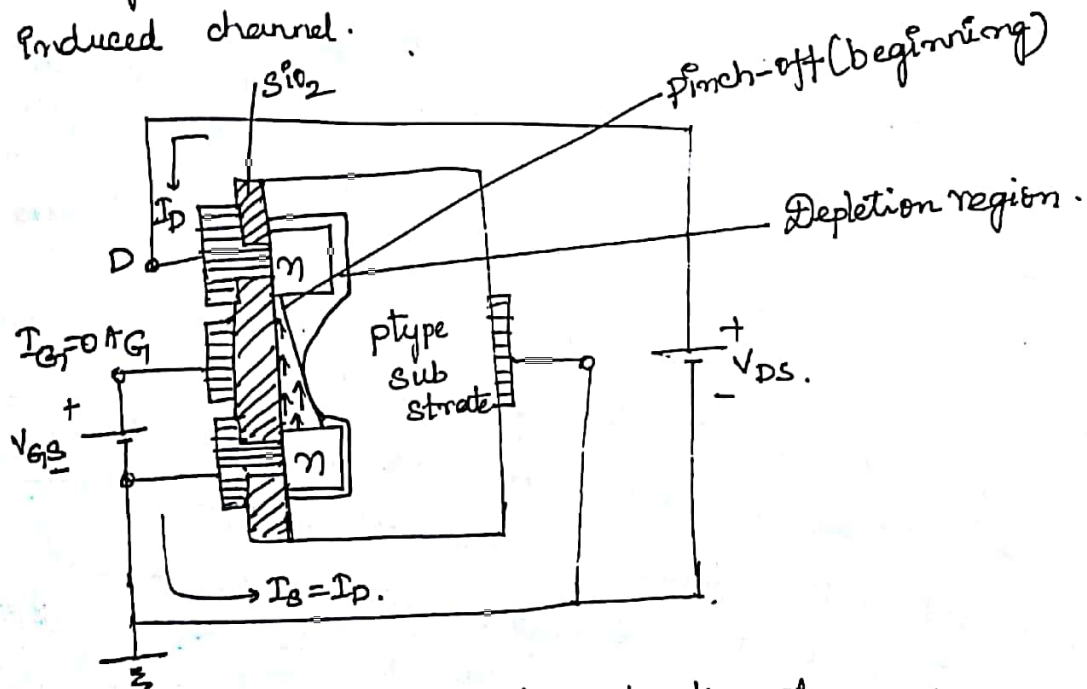 induced channel.
SiO2
Pinch-off (beginning)
ID
Depletion region.
D
n
IG=0A G
ptype
sub
strate
+
VDS.
-
+
VGS
-
n
IS=ID.